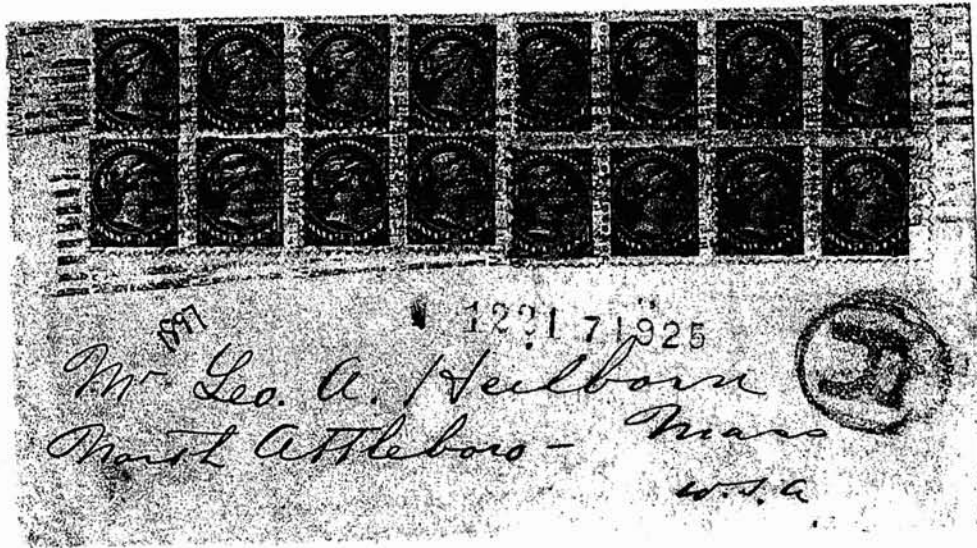 1897
1221 71925
T
Mr Leo. A. Heilborn
North Attleboro - Mass
U.S.A